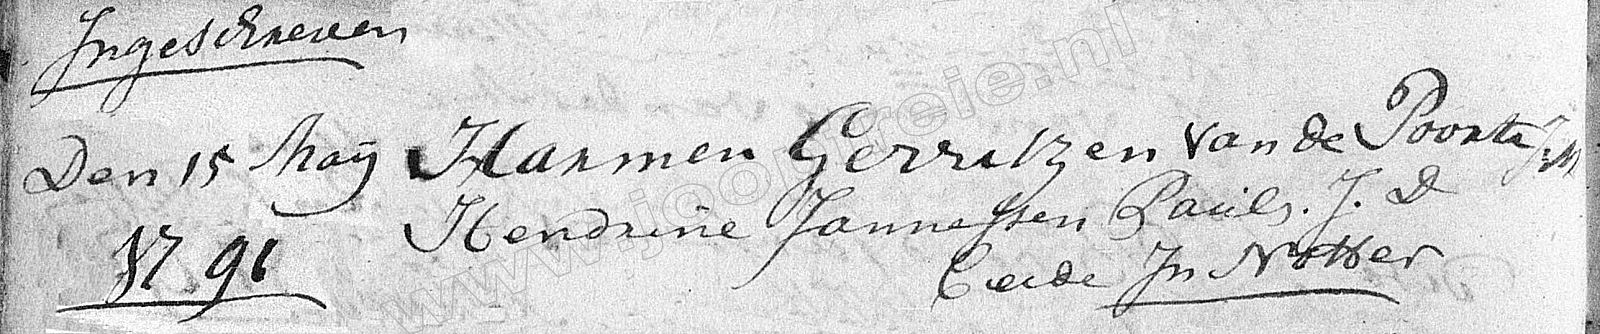 Ingeschreven
Den 15 Maÿ Harmen Gerritzen van de Poorte J:M
Hendrine Jannessen Pauls. J. D
1791 Beide In Notter
www.jooptreie.nl